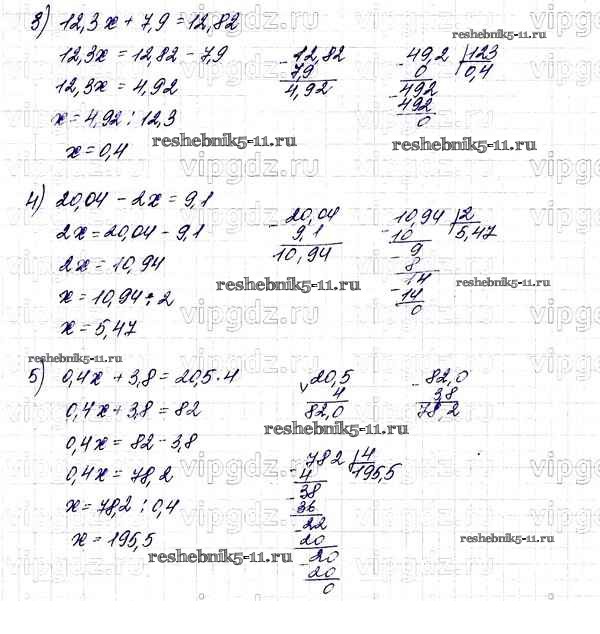 3) 12,3x + 7,9 = 12,82
12,3x = 12,82 - 7,9
12,3x = 4,92
x = 4,92 : 12,3
x = 0,4
- 12,82
7,9
4,92
- 49,2 | 123
0 | 0,4
- 492
492
0
reshebnik5-11.ru
reshebnik5-11.ru
4) 20,04 - 2x = 9,1
2x = 20,04 - 9,1
2x = 10,94
x = 10,94 : 2
x = 5,47
- 20,04
9,1
10,94
- 10,94 | 2
10 | 5,47
- 9
8
- 14
14
0
reshebnik5-11.ru
reshebnik5-11.ru
reshebnik5-11.ru
5) 0,4x + 3,8 = 20,5 · 4
0,4x + 3,8 = 82
0,4x = 82 - 3,8
0,4x = 78,2
x = 78,2 : 0,4
x = 195,5
× 20,5
4
82,0
- 82,0
3,8
78,2
reshebnik5-11.ru
- 782 | 4
4 | 195,5
- 38
36
- 22
20
- 20
20
0
reshebnik5-11.ru
reshebnik5-11.ru
vipgdz.ru